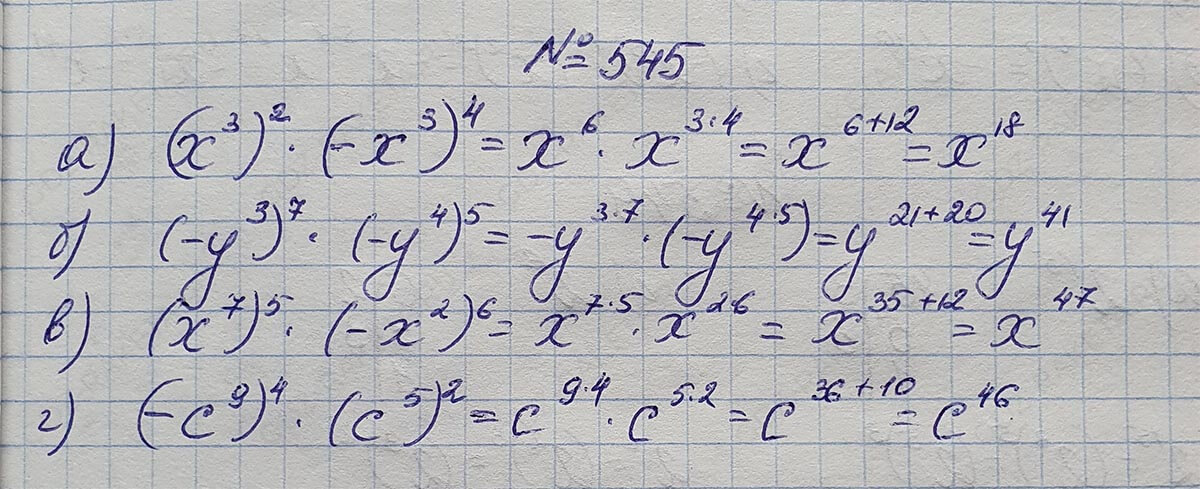 № 545
а) (x³)² · (-x³)⁴ = x⁶ · x³·⁴ = x⁶⁺¹² = x¹⁸
б) (-y³)⁷ · (-y⁴)⁵ = -y³·⁷ · (-y⁴·⁵) = y²¹⁺²⁰ = y⁴¹
в) (x⁷)⁵ · (-x²)⁶ = x⁷·⁵ · x²·⁶ = x³⁵⁺¹² = x⁴⁷
г) (-c⁹)⁴ · (c⁵)² = c⁹·⁴ · c⁵·² = c³⁶⁺¹⁰ = c⁴⁶